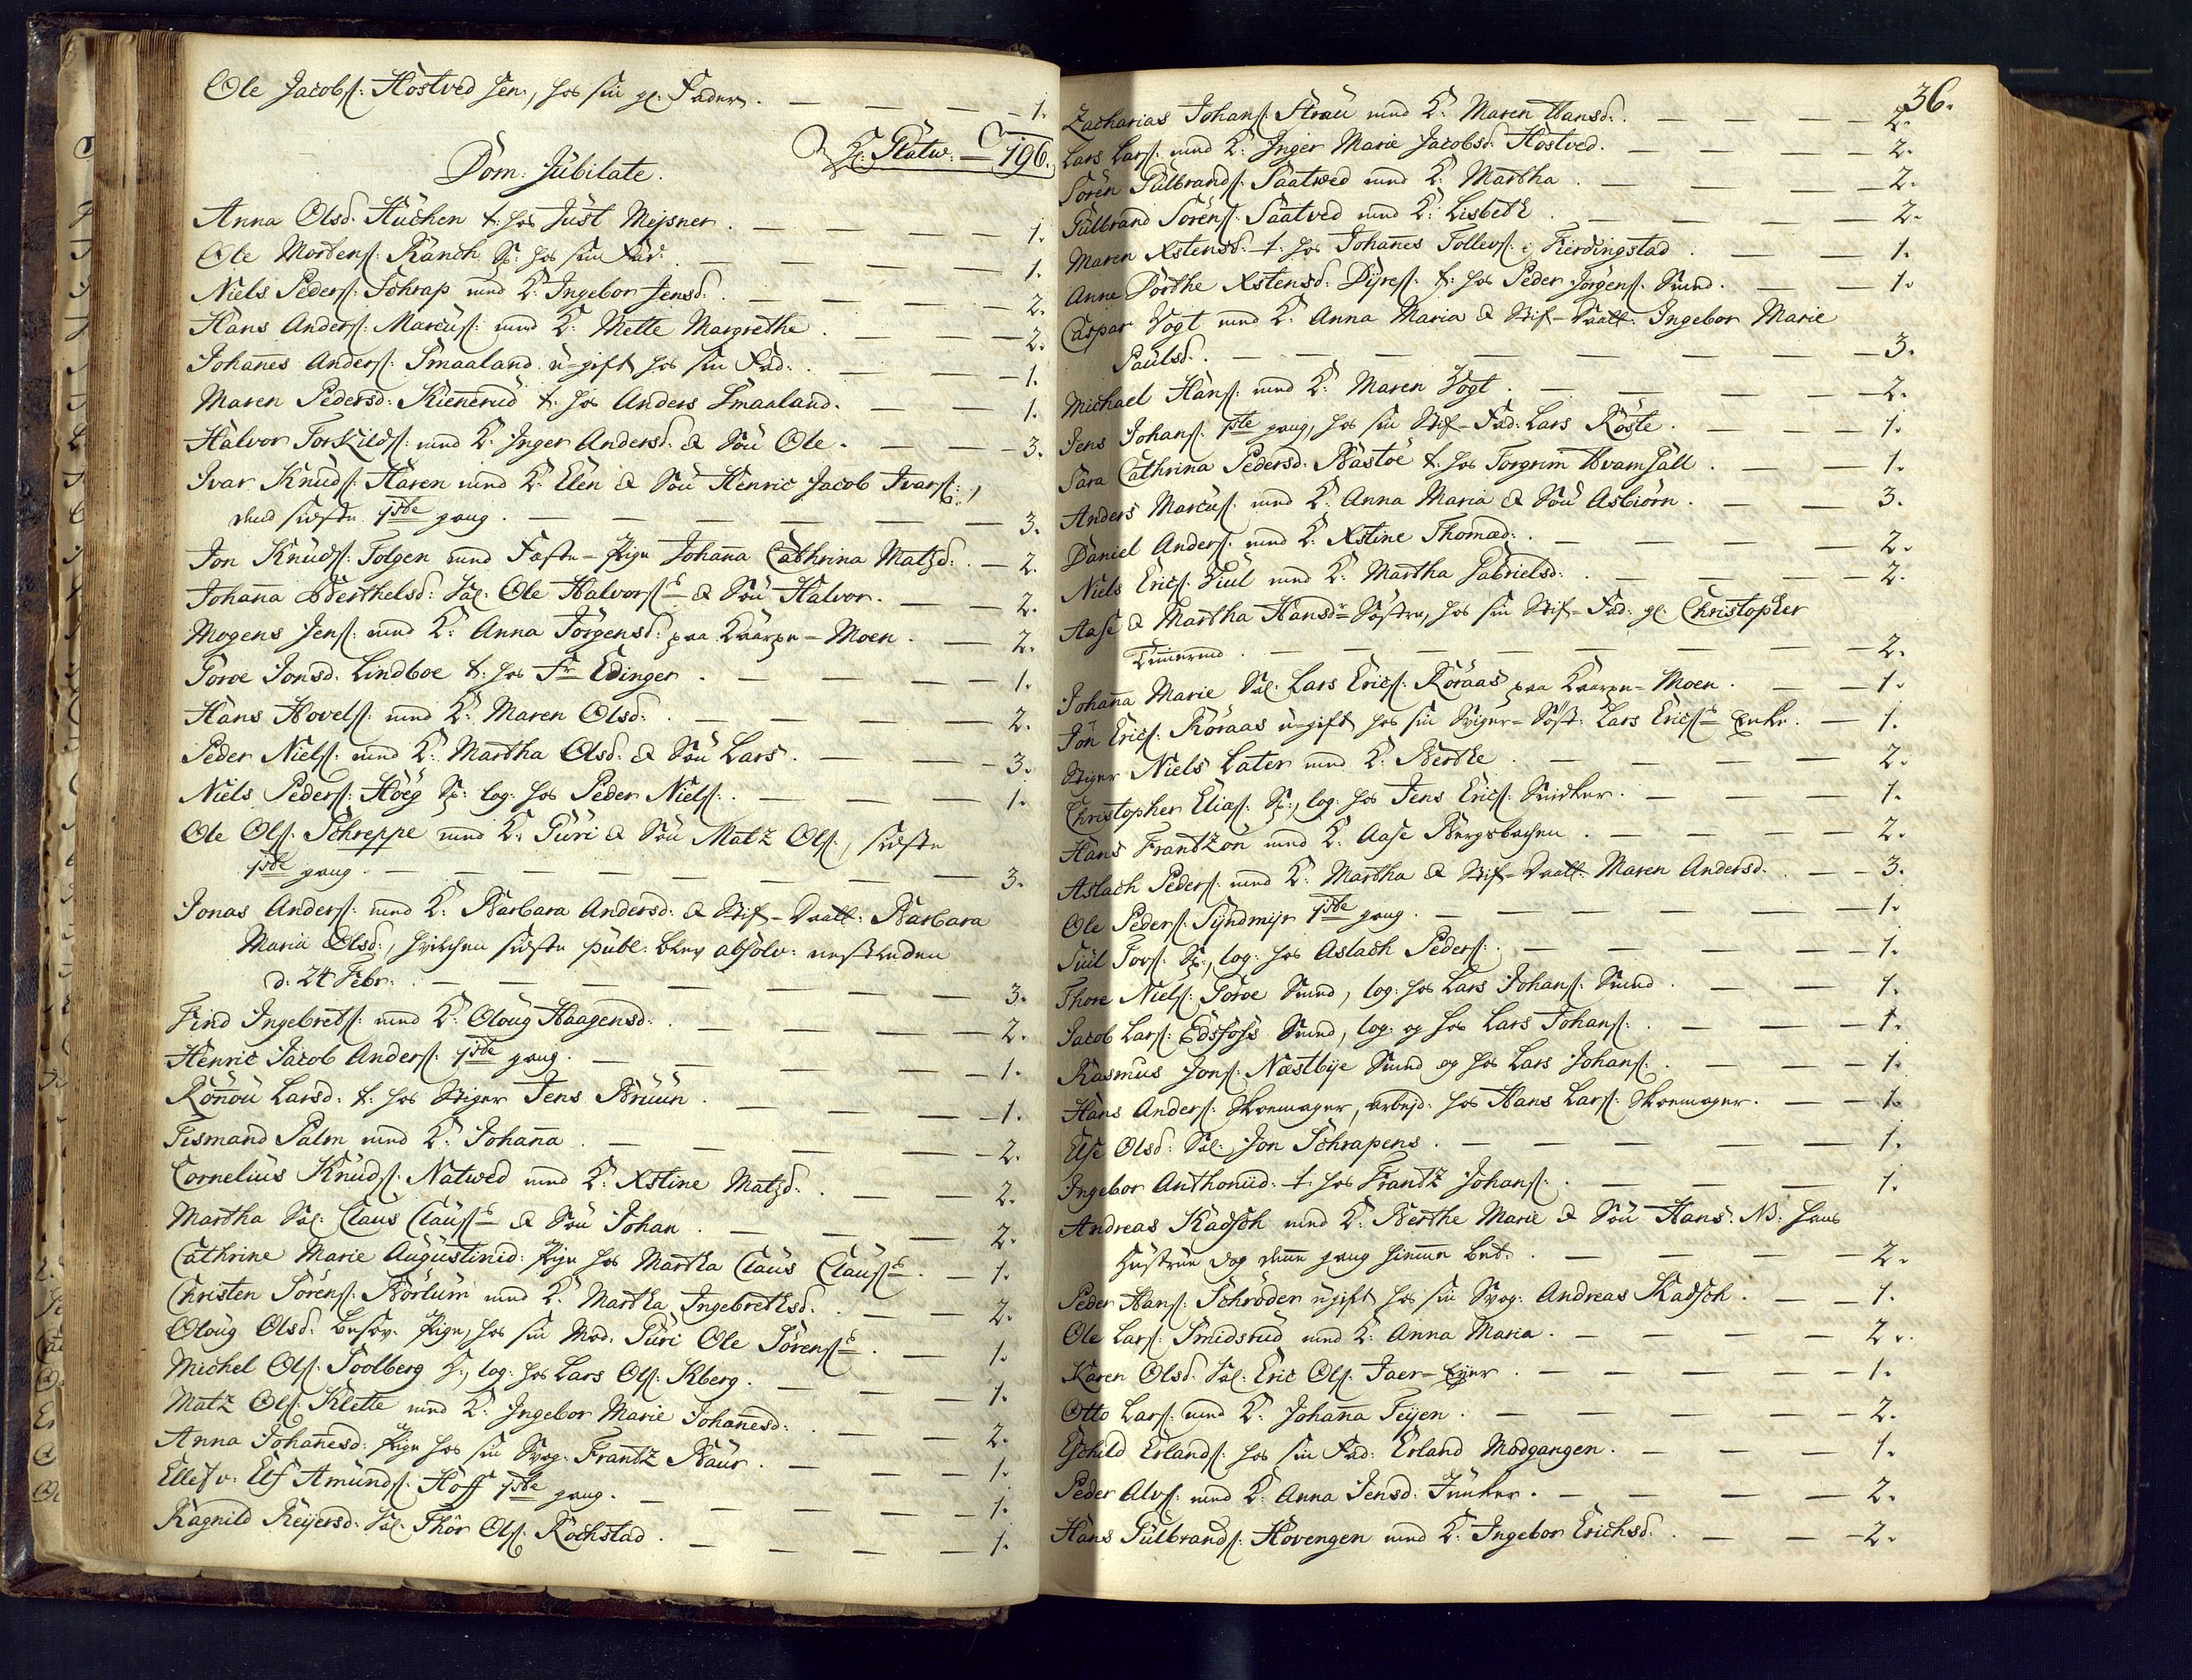 Ole Jacobs: Hostved sen:, hos sin gl: Fader. — — — 1.
— 196.
Dom: Jubilate.
Anna Olsd: Kuchen t: hos Just Meysner. — — — 1.
Ole Mortens: Ranch hos sin Fad: — — — 1.
Niels Peders: Schrap med K: Ingebor Jensd: — — — 2.
Hans Anders: Marcus: med K: Mette Margrethe. — — — 2.
Johanes Anders: Smaaland u-gift hos sin Fad: — — — 1.
Maren Pedersd: Kienerud t: hos Anders Smaaland. — — 1.
Halvor Torkilds: med K: Inger Andersd: & Søn Ole. — — 3.
Ivar Knuds: Haren med K: Elen & Søn Henric Jacob Ivars:,
denne sidste 1ste gang. — — — 3.
Jon Knuds: Tolgen med Fæste-Pige Johana Cathrina Matzd: — 2.
Johana Berthelsd: Sal: Ole Halvors: & Søn Halvor. — — 2.
Mogens Jens: med K: Anna Jørgensd: paa — Moen. — 2.
Goroe Jonsd: Lindboe t: hos Fr Edinger. — — 1.
Hans Hovels: med K: Maren Olsd: — — — 2.
Peder Niels: med K: Martha Olsd: & Søn Lars. — — 3.
Niels Peders: Høeg log: hos Peder Niels: — — — 1.
Ole Ols: Schreppe med K: Guri & Søn Matz Ols:, sidste
1ste gang. — — — 3.
Jonas Anders: med K: Barbara Andersd: & Stif-Datt: Barbara
Maria Olsd:, hvilchen sidste publ: blev absolv: nestleden
d: 24 Febr: — — — 3.
Find Ingebrets: med K: Oloug Haagensd: — — — 2.
Henric Jacob Anders: 1ste gang. — — — 1.
Rønou Larsd: t: hos Stiger Jens Bruun. — — — 1.
Gismand Palm med K: Johana. — — — 2.
Cornelius Knuds: Natwed med K: Xstine Matzd: — — 2.
Martha Sal: Claus Claus: & Søn Johan. — — 2.
Cathrine Marie Augustinid: Pige hos Martha Claus Claus: — 1.
Christen Sørens: Børlum med K: Martha Ingebrethsd: — — 2.
Oloug Olsd: besov: Pige, hos sin Mod: Guri Ole Sørens: — 1.
Michel Ols: Soolberg log: hos Lars Ols: Kberg. — — 1.
Matz Ols: Klette med K: Ingebor Marie Johanesd: — — 2.
Anna Johanesd: Pige hos sin Svog: Frantz Baur. — — 1.
Ellef v: Elf Amunds: Hoff 1ste gang. — — — 1.
Ragnild Reijersd: Sal: Thor Ols: Rochstad. — — — 1.
36.
Zacharias Johans: Strau med K: Maren Hansd: — — — 2.
Lars Lars: med K: Inger Marie Jacobsd: Hostved. — — — 2.
Søren Gulbrands: Saatwed med K: Martha. — — — 2.
Gulbrand Sørens: Saatved med K: Lisbeth. — — — 2.
Maren Xstensd: t: hos Johanes Tollevs: i Fierdingstad. — — 1.
Anne Dorthe Xstensd: Dyres: t: hos Peder Jørgens: Smed. — — 1.
Caspar Vogt med K: Anna Maria & Stif-Datt: Ingebor Marie
Paulsd: — — — 3.
Michael Hans: med K: Maren Vogt. — — — 2.
Jens Johans: 1ste gang, hos sin Stif-Fad: Lars Røste. — — 1.
Sara Cathrina Pedersd: Bastøe t: hos Torgrim — — 1.
Anders Marcus: med K: Anna Maria & Søn Asbiørn. — — 3.
Daniel Anders: med K: Xstine Thomæd: — — — 2.
Niels Erics: Giul med K: Martha Gabrielsd: — — — 2.
Aase & Martha Hansdr Søstre, hos sin Stif-Fad: gl: Christopher
— — — 2.
Johana Marie Sal: Lars Erics: Røraas paa — Moen. — 1.
Jon Erics: Røraas u-gift hos sin Sviger-Søst: Lars Erics: Enke. — 1.
Stiger Niels Later med K: Berthe. — — — 2.
Christopher Elias: log: hos Jens Erics: Snidker. — — 1.
Hans Frantzon med K: Aase Bergsbachen. — — — 2.
Aslach Peders: med K: Martha & Stif-Datt: Maren Andersd: — — 3.
Ole Peders: Syndmyr 1ste gang. — — — 1.
Giul Tors: log: hos Aslach Peders: — — — 1.
Thore Niels: Goroe Smed, log: hos Lars Johans: Smed. — — 1.
Jacob Lars: Edsfoss Smed, log: og hos Lars Johans: — — 1.
Rasmus Jons: Næstbye Smed og hos Lars Johans: — — 1.
Hans Anders: Skoemager, arbejd: hos Hans Lars: Skoemager. — — 1.
Else Olsd: Sal: Jon Schrapens. — — — 1.
Ingebor Anthoniid: t: hos Frantz Johans: — — — 1.
Andreas Kadsoh med K: Berthe Marie & Søn Hans. NB: hans
Hustrue dog denne gang hiemme bet: — — — 2.
Peder Hans: Schrøder ugift hos sin Svog: Andreas Kadsoh. — — 1.
Ole Lars: Smidsrud med K: Anna Maria. — — — 2.
Karen Olsd: Sal: Eric Ols: Jaer-Eyer. — — — 1.
Otto Lars: med K: Johana Teijen. — — — 2.
Eschild Erlands: hos sin Fad: Erland Modgangen. — — — 1.
Peder Alvs: med K: Anna Jensd: Junker. — — — 2.
Hans Gulbrands: Hovengen med K: Ingebor Erichsd: — — 2.